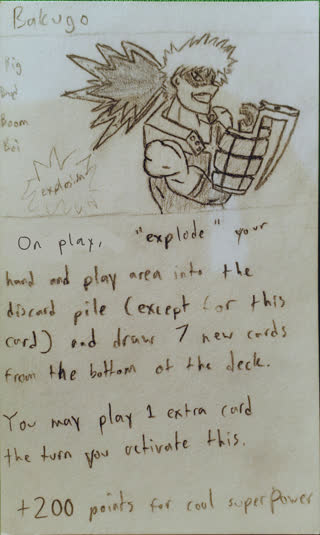 Bakugo
Big
Bad
Boom
Boi
explosion
On play, "explode" your
hand and play area into the
discard pile (except for this
card) and draw 7 new cards
from the bottom of the deck.
You may play 1 extra card
the turn you activate this.
+200 points for cool superpower